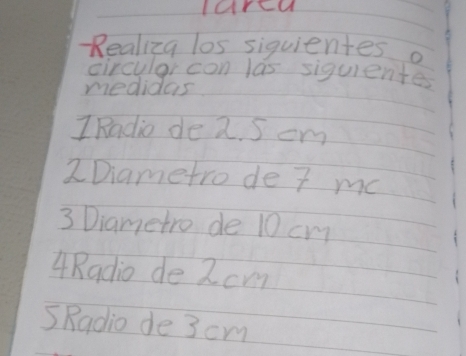 Tarea
Realiza los siguientes o
circular con las siguientes
medidas
1 Radio de 2.5 cm
2 Diametro de 7 mc
3 Diametro de 10 cm
4 Radio de 2 cm
5 Radio de 3 cm